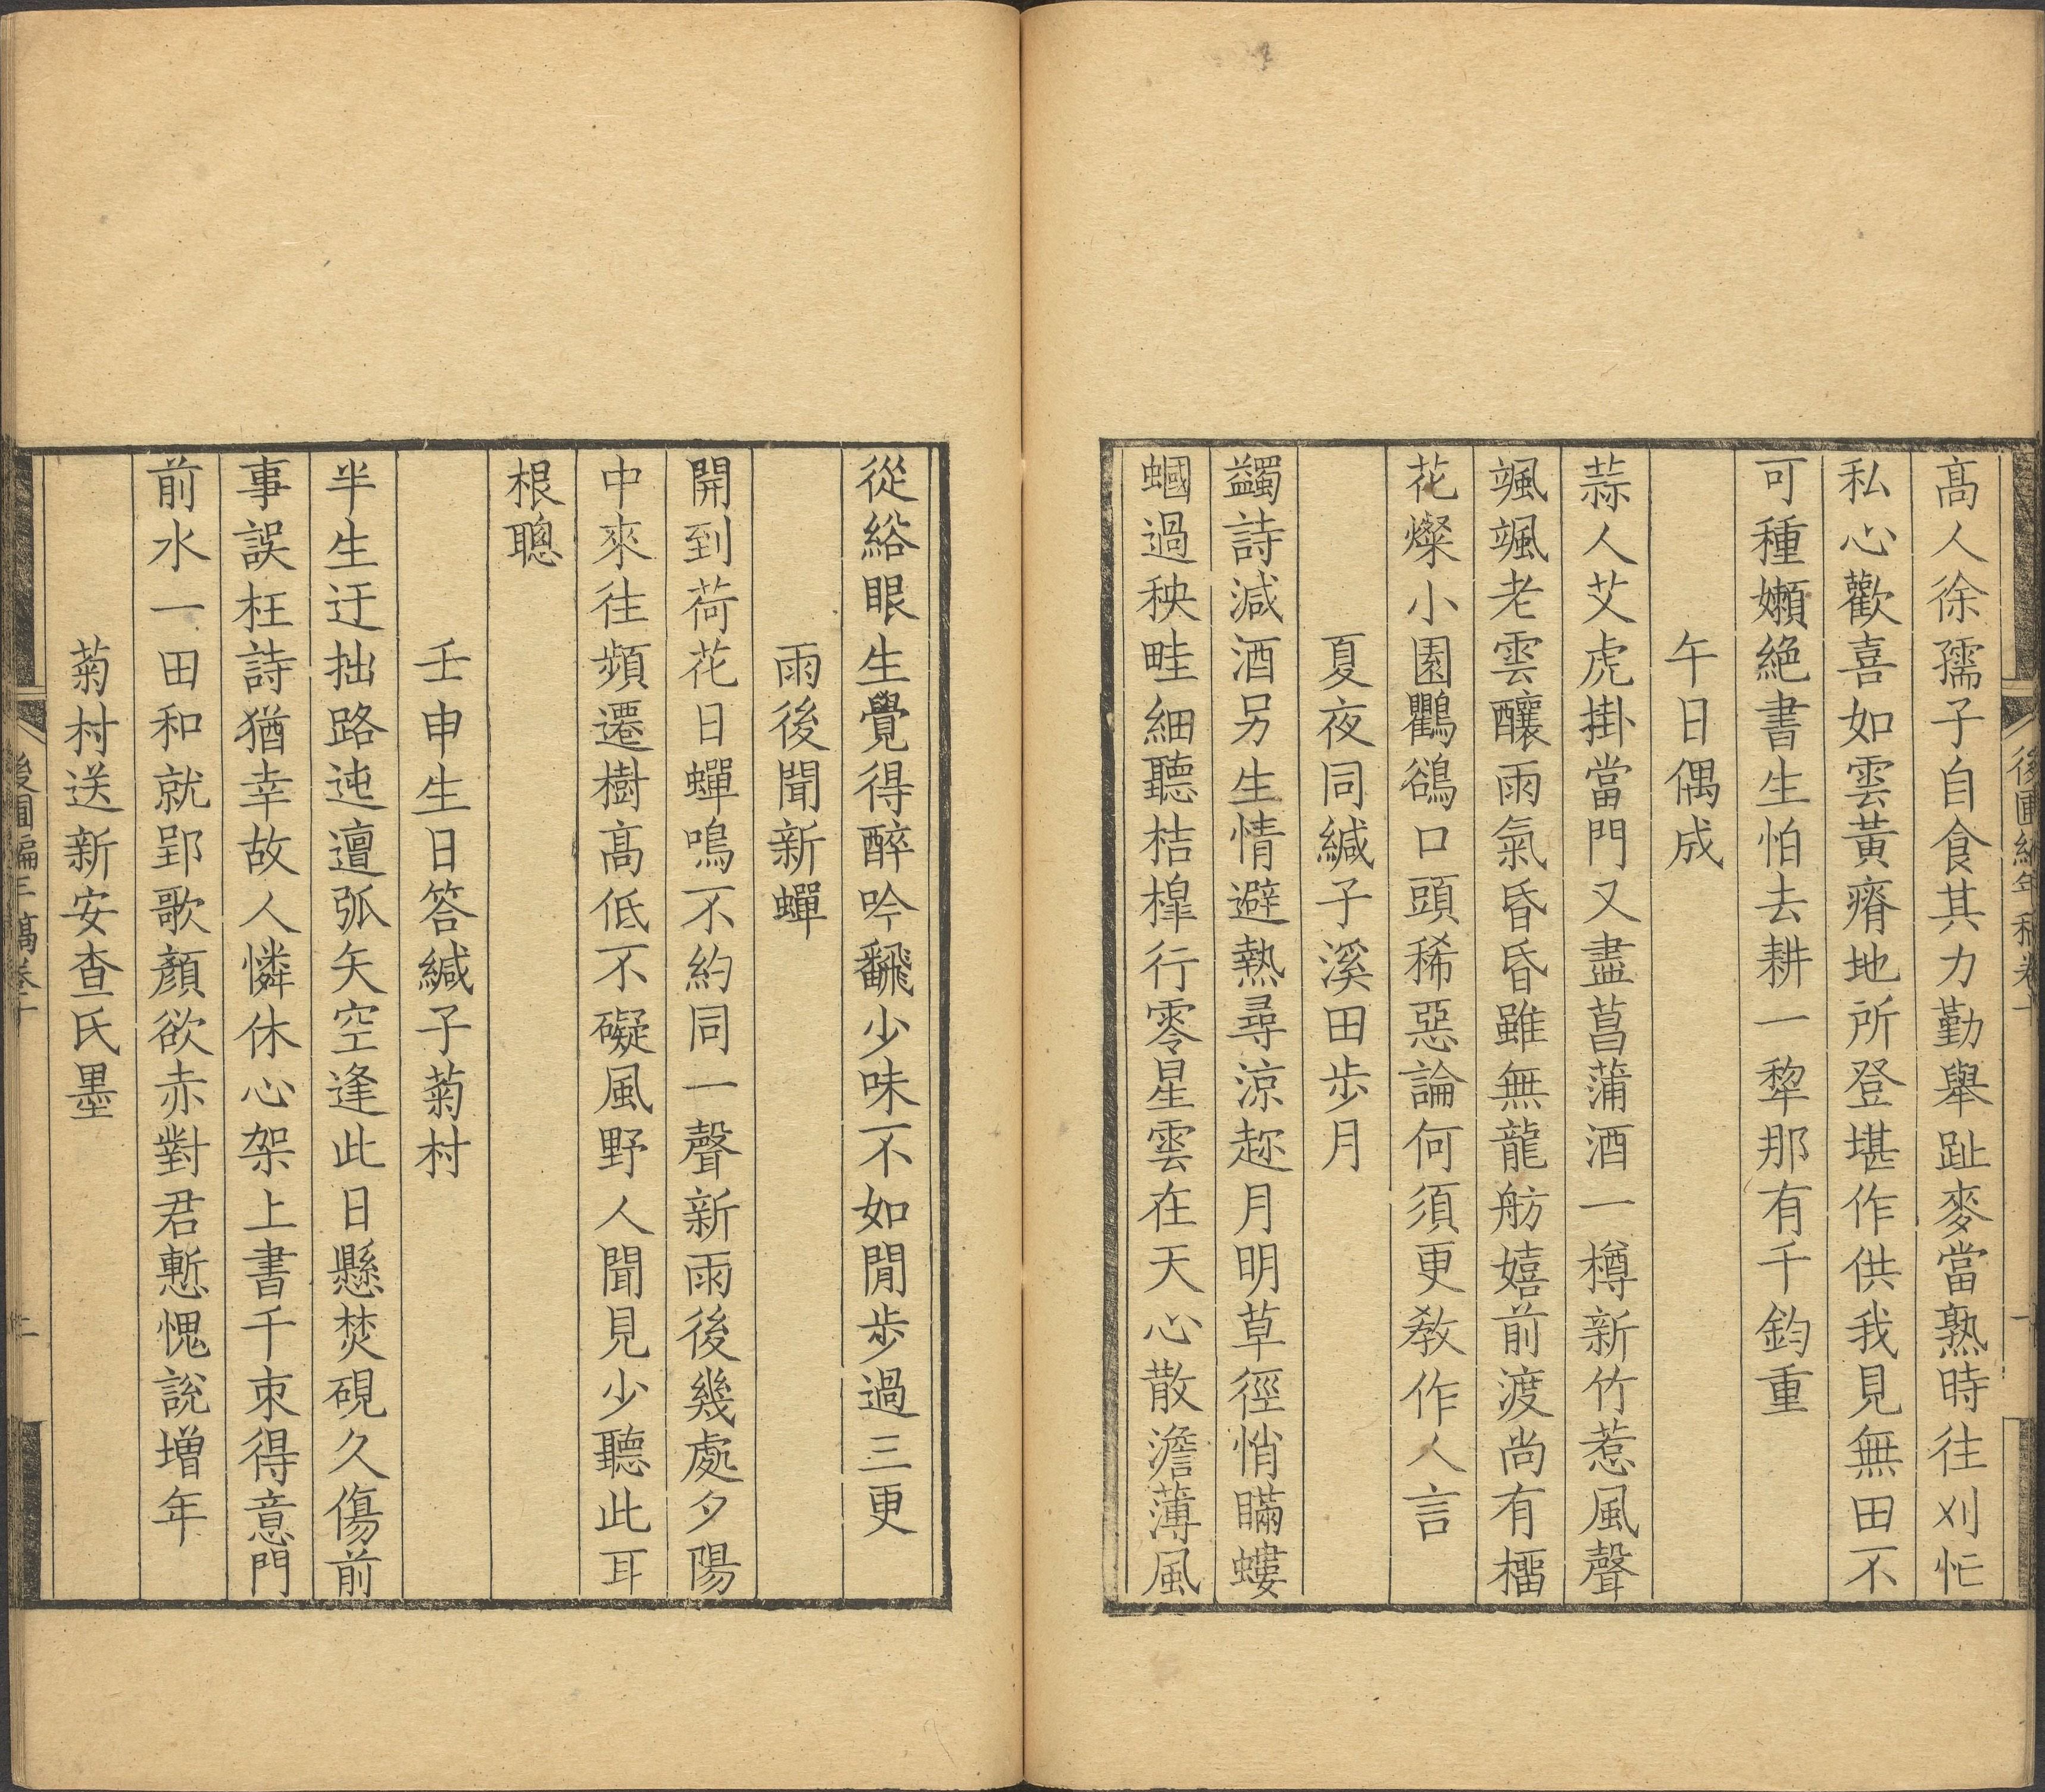 高人徐孺子自食其力勤舉趾麥當熟時往刈忙
私心歡喜如雲黃瘠地所登堪作供我見無田不
可種嬾絕書生怕去耕一犂那有千鈞重
午日偶成
蒜人艾虎掛當門又盡菖蒲酒一樽新竹惹風聲
颯颯老雲釀雨氣昏昏雖無龍舫嬉前渡尚有榴
花燦小園鸜鵒口頭稀惡論何須更教作人言
夏夜同緘子溪田步月
蠲詩減酒另生情避熱尋涼趂月明草徑悄瞞螻
蟈過秧畦細聽桔槔行零星雲在天心散澹薄風
從綌眼生覺得醉吟飜少味不如閒步過三更
雨後聞新蟬
開到荷花日蟬鳴不約同一聲新雨後幾處夕陽
中來往頻遷樹高低不礙風野人聞見少聽此耳
根聰
壬申生日答緘子菊村
半生迂拙路迍邅弧矢空逢此日懸焚硯久傷前
事誤枉詩猶幸故人憐休心架上書千束得意門
前水一田和就郢歌顏欲赤對君慙愧說增年
菊村送新安查氏墨
後圃編年稿卷十